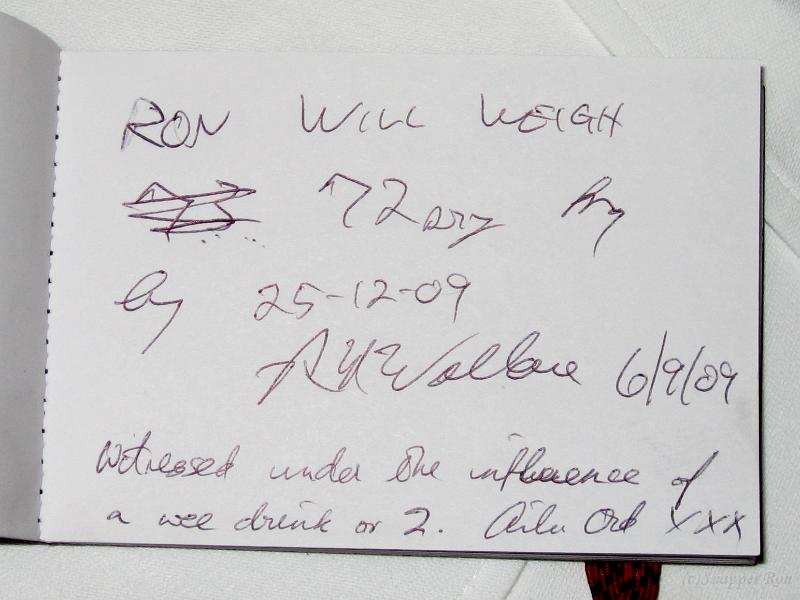 RON WILL WEIGH
72 by
by 25-12-09
Wallace 6/9/09
Witnessed under the influence of
a wee drink or 2. Ord xxx
(c)Snapper Ron